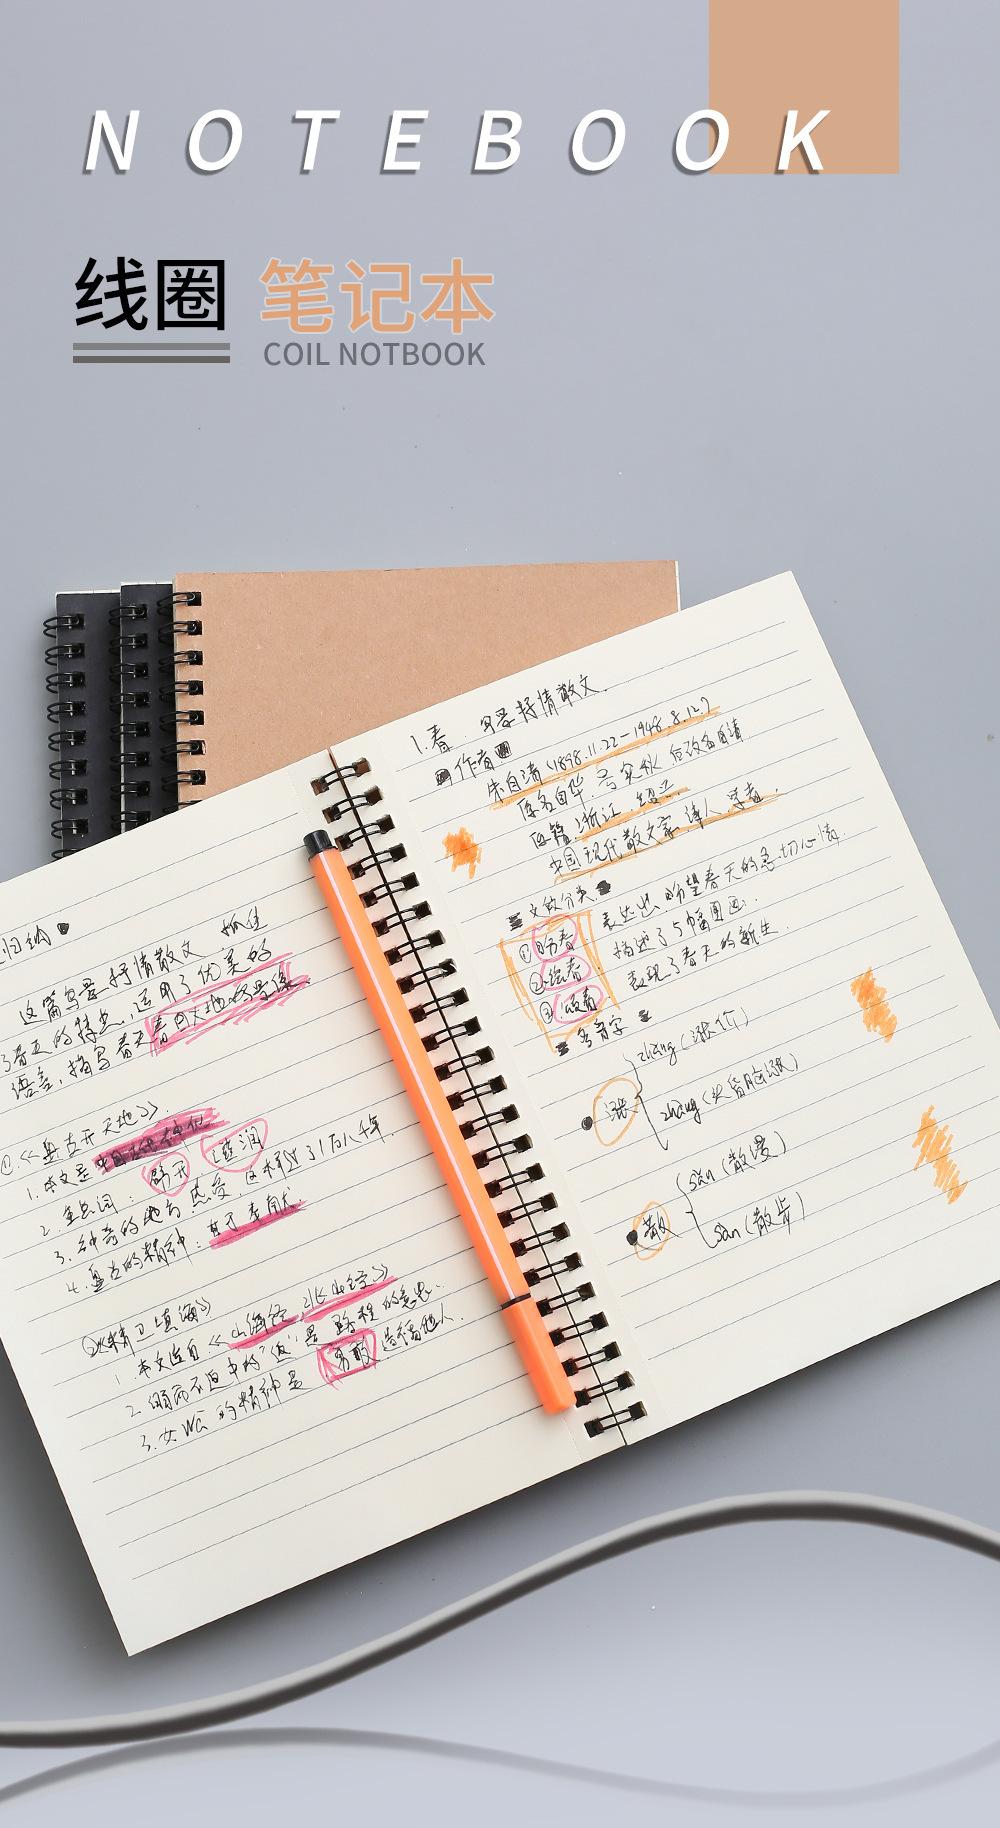 NOTEBOOK
线圈 笔记本
COIL NOTBOOK
1.春 写景抒情散文.
作者
朱自清(1898.11.22-1948.8.12.)
原名自华,号实秋 后改名自清
原籍:浙江.绍兴.
中国现代散文家,诗人,学者.
文做分类
①盼春: 表达出,盼望春天的急切心情.
②绘春: 描述了5幅图画.
③颂春 表现了春天的新生.
多音字
涨
zhǎng(涨价)
zhàng(头昏脑涨)
散
sǎn(散漫)
sàn(散步)
归纳
这篇写景抒情散文,抓住
了春天的特点,运用了优美的
语言,描写春天
①.《盘古开天地》.
1.本文是
2.重点词: 劈开 滋润
3.神奇的地方
4.盘古的精神:
②《精卫填海》
1.本文选自《山海经.北山经》
2.
3.女娃的精神是 勇敢 造福他人.